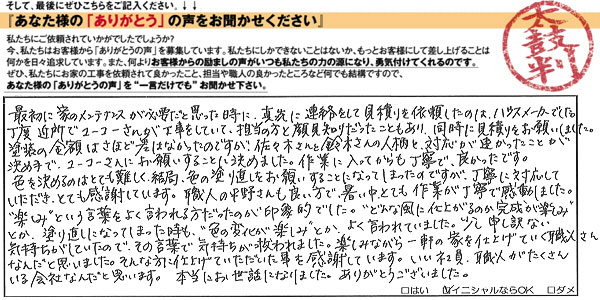 そして、最後にぜひこちらをご記入ください。↓↓
『あなた様の「ありがとう」の声をお聞かせください』
私たちにご依頼されていかがでしたでしょうか？
今、私たちはお客様から「ありがとうの声」を募集しています。私たちにしかできないことはないか、もっとお客様にして差し上げることは
何かを日々追求しています。また、何よりお客様からの励ましの声がいつも私たちの力の源になり、勇気付けてくれるのです。
ぜひ、私たちにお家の工事を依頼されて良かったこと、担当や職人の良かったところなど何でも結構ですので、
あなた様の「ありがとうの声」を“一言だけでも”お聞かせ下さい。
太鼓判
最初に家のメンテナンスが必要だと思った時に、真先に連絡をして見積りを依頼したのは、ハウスメーカーでした。
丁度近所でユーコーさんが工事をしていて、担当の方と顔見知りだったこともあり、同時に見積りをお願いしました。
塗装の金額はさほど差はなかったのですが、佐々木さんと鈴木さんの人柄と、対応が速かったことが
決め手で、ユーコーさんにお願いすることに決めました。作業に入ってからも丁寧で、良かったです。
色を決めるのはとても難しく、結局、色の塗り直しをお願いすることになってしまったのですが、丁寧に対応して
いただき、とても感謝しています。職人の平野さんも良い方で、暑い中とても作業が丁寧で感動しました。
“楽しみ”という言葉をよく言われる方だったのが印象的でした。“どんな風に仕上がるのか完成が楽しみ”
とか、塗り直しになってしまった時も、“色の変化が楽しみ”とか、よく言われていました。少し申し訳ない
気持ちがしていたので、その言葉で気持ちが救われました。楽しみながら一軒の家を仕上げていく職人さん
なんだと思いました。そんな方に仕上げていただいた事を感謝しています。いい社員、職人がたくさん
いる会社なんだと思います。本当にお世話になりました。ありがとうございました。
□はい ☑イニシャルならOK □ダメ